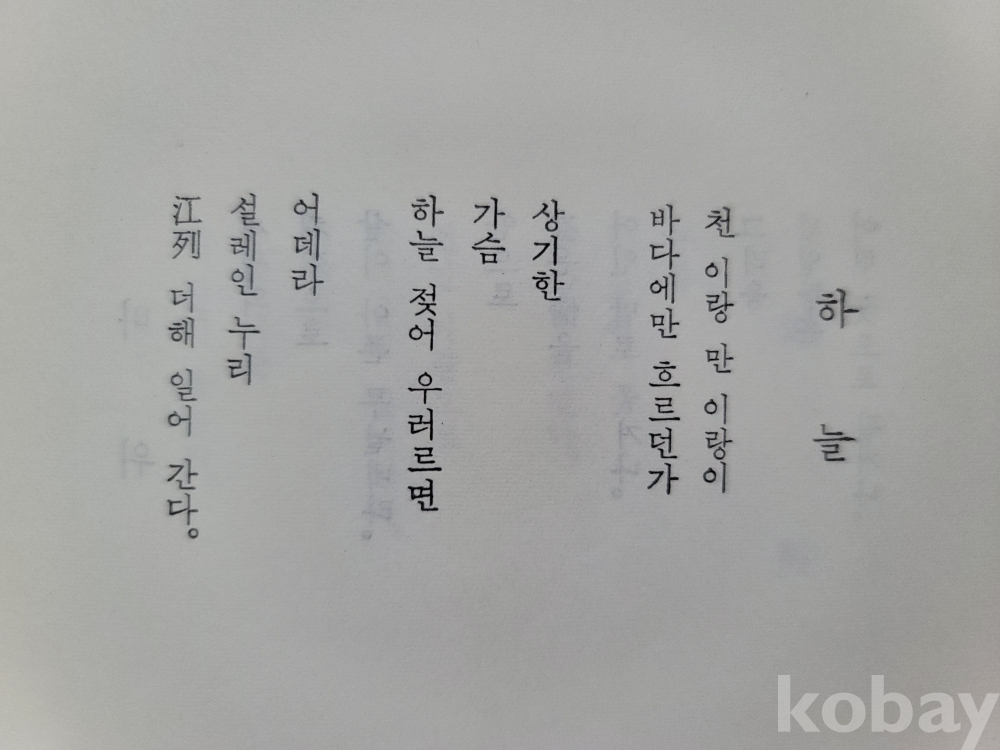 하늘
천 이랑 만 이랑이
바다에만 흐르던가
상기한
가슴
하늘 젖어 우러르면
어데라
설레인 누리
江列 더해 일어 간다。
kobay